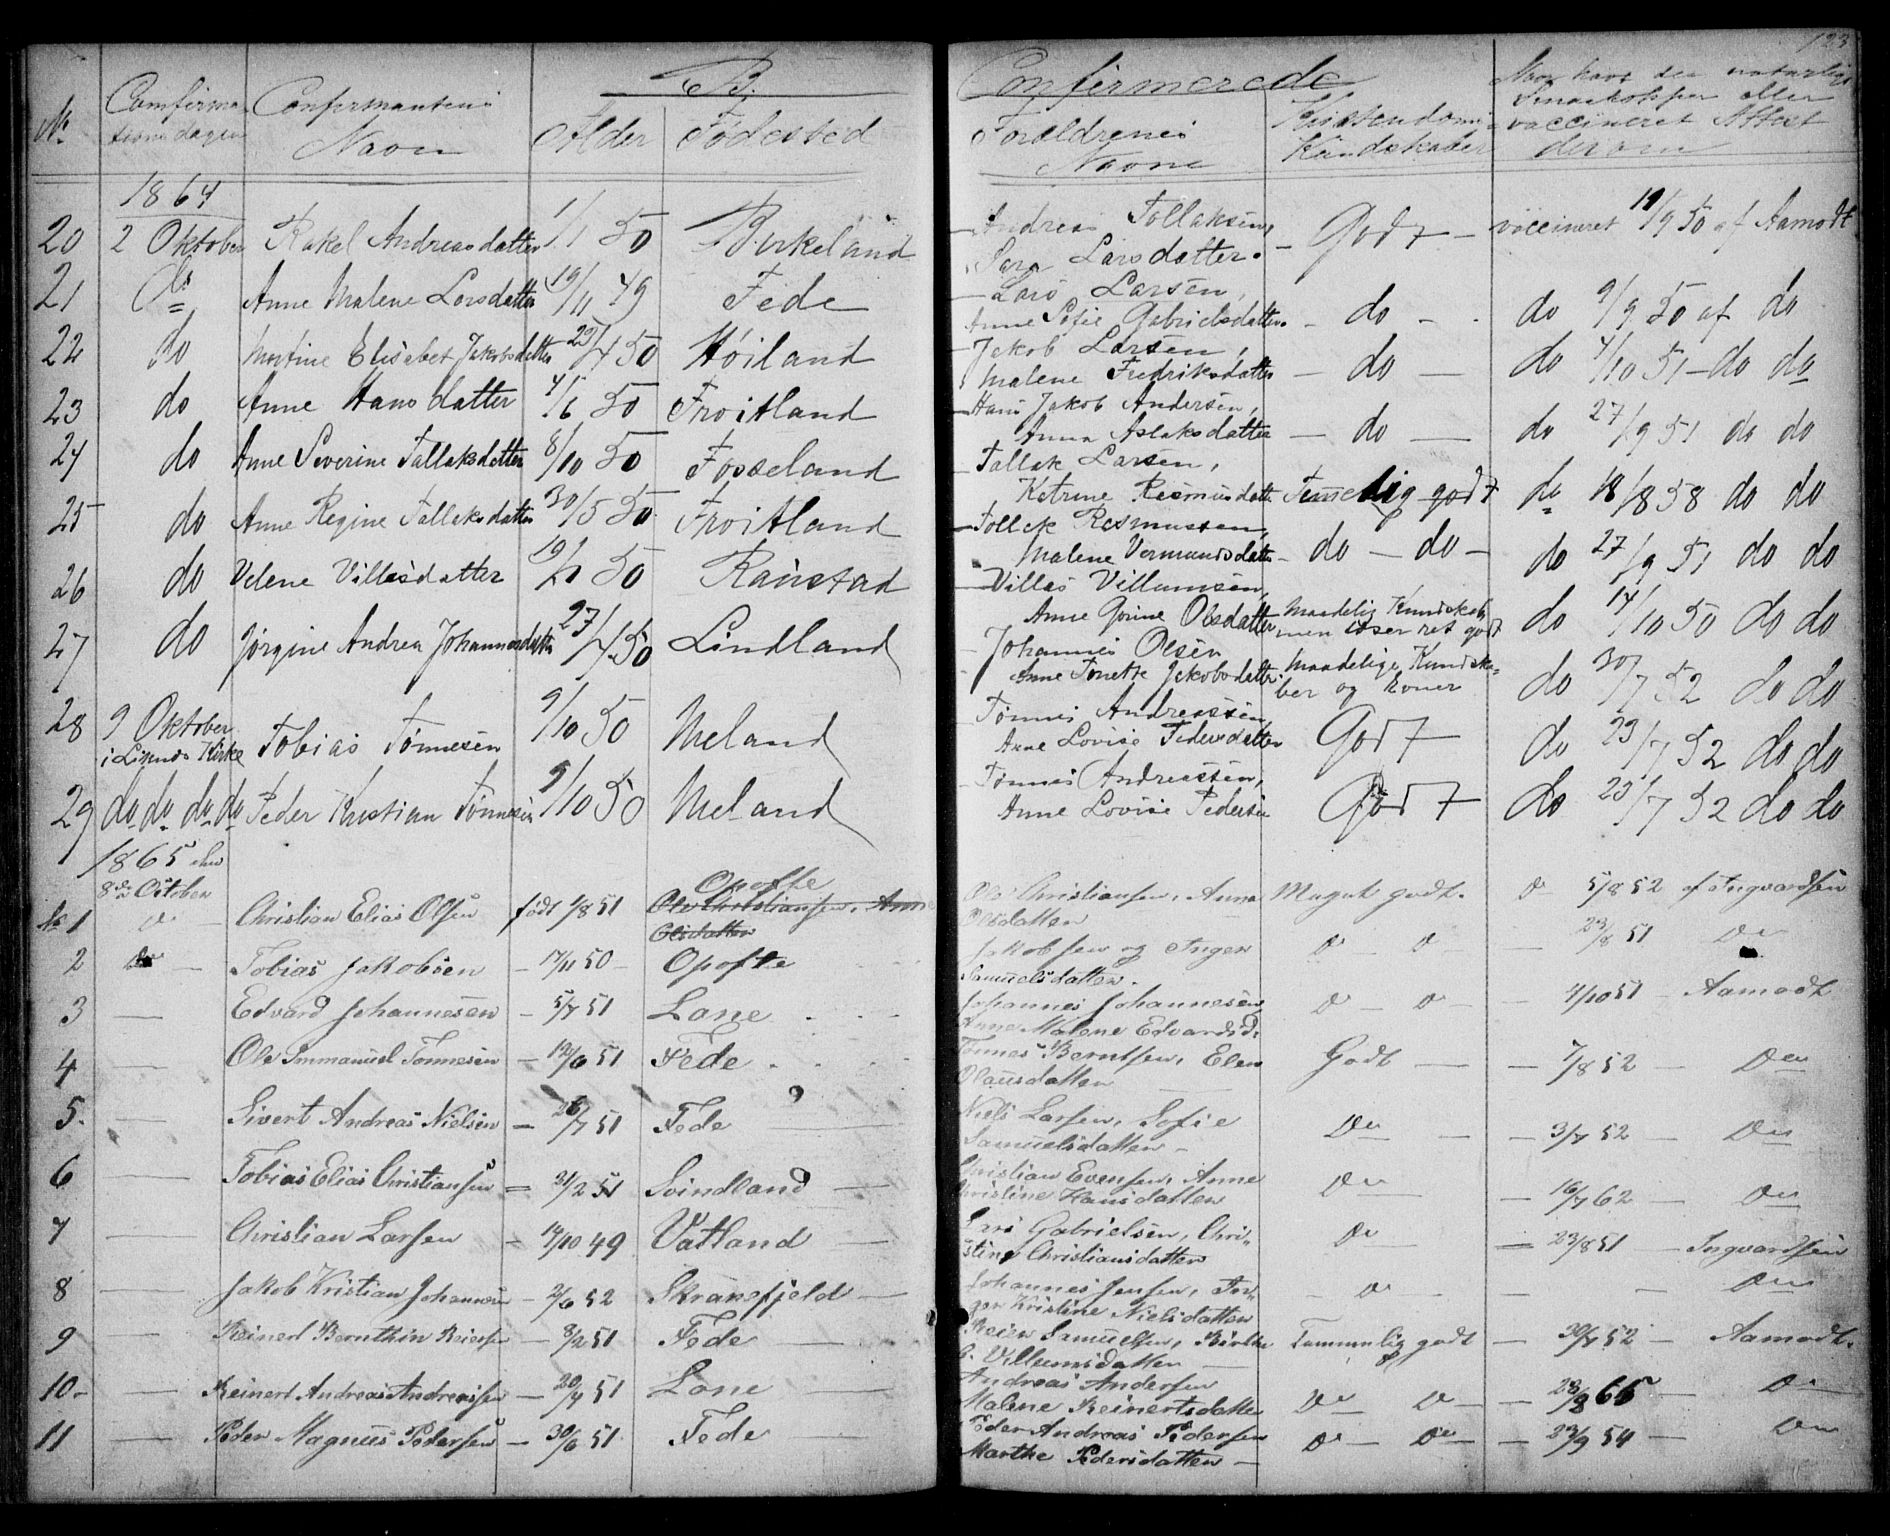 123
B. Confirmerede
No. Confirmationsdagen Confirmantens Navn Alder Fødested Forældrenes Navne Kristendoms Kundskaber Naar havt de naturlige Smaakopper eller vaccineret Attest derom
1864
20 2 Oktober Rakel Andreasdatter 1/1 50 Birkeland Andreas Tollaksen, Sara Larsdatter. Godt vaccineret 19/9 50 af Aamodt
21 Do Anne Malene Larsdatter 19/11 49 Fede Lars Larsen, Anne Sofie Gabrielsdatter. do do 9/9 50 af do
22 do Martine Elisabet Jakobsdatter 23/4 50 Høiland Jakob Larsen, Malene Fredriksdatter do do 4/10 51 do do
23 do Anne Hansdatter 4/6 50 Froitland Hans Jakob Andersen, Anna Aslaksdatter do do 27/9 51 do do
24 do Anne Severine Tallaksdatter 8/10 50 Fosseland Tallak Larsen, Katrine Rasmusdatter Temelig godt do 18/8 58 do do
25 do Anne Regine Tallaksdatter 30/5 50 Froitland Tollak Rasmussen, Malene Vermundsdatter do do do 27/9 51 do do
26 do Velene Villasdatter 50 Raustad Villas Villumsen, Anne Gurine Olsdatter Maadelig Kundskab, men læser ret godt do 14/10 50 do do
27 do Jørgine Andrea Johannesdatter 27/4 50 Lindland Johannes Olsen Anne Tonette Jakobsdatter Maadelige Kundskaber og Evner do 30/7 52 do do
28 9 Oktober i Liknes Kirke Tobias Tønnesen 9/10 50 Meland Tønnes Andreassen Anne Lovise Pedersdatter Godt do 23/7 52 do do
29 do do do do Peder Kristian Tønnesen 9/10 50 Meland Tønnes Andreassen, Anne Lovise Peders Godt do 23/7 52 do do
1865 den 8de October
No 1 Do Christian Elias Olsen født 1/8 51 Opofte Ole Christiansen, Anna Olsdatter Meget godt. Do 5/8 52 af Ingvardsen
2 Do Tobias Jakobsen 17/11 50 Opofte Jakobsen og Inger Samuelsdatter. Do Do 23/8 51 Do
3 Edvard Johannesen 5/7 51 Lone Johannes Johannesen, Anne Malene Edvardsd. Do Do 4/10 51 Aamodt
4 Ole Immanuel Tonnesen 12/6 51 Fede Tonnes Berntsen, Elen Olausdatter Godt 7/8 52 Do
5. Sivert Andreas Nielsen 26/7 51 Fede Niels Larsen, Sofie Samuelsdatter Do 3/7 52 Do
6 Tobias Elias Christiansen 51 Svindland Christian Evensen, Anne Christine Hansdatter Do 16/7 62 Do
7 Christian Larsen 14/10 49 Vatland Lars Gabrielsen, Christine Christiansdatter Do 23/8 51 Ingvardsen
8 Jakob Kristian Johannesen 2/6 52 Skranefjeld Johannes Jensen, Inger Kristine Nielsdatter Do Do
9 Reinert Bernthin Reiersen 8/2 51 Fede Reier Samuelsen, Birthe G. Villumsdatter Temmelig godt 30/7 52 Aamodt.
10 Reinert Andreas Andreassen 20/4 51 Lone Andreas Andersen Malene Reinertsdatter Do Do 28/8 65 Do
11 Peder Magnus Pedersen 30/6 51 Fede Peder Andreas Pedersen Marthe Pedersdatter Do Do 23/9 54 Do